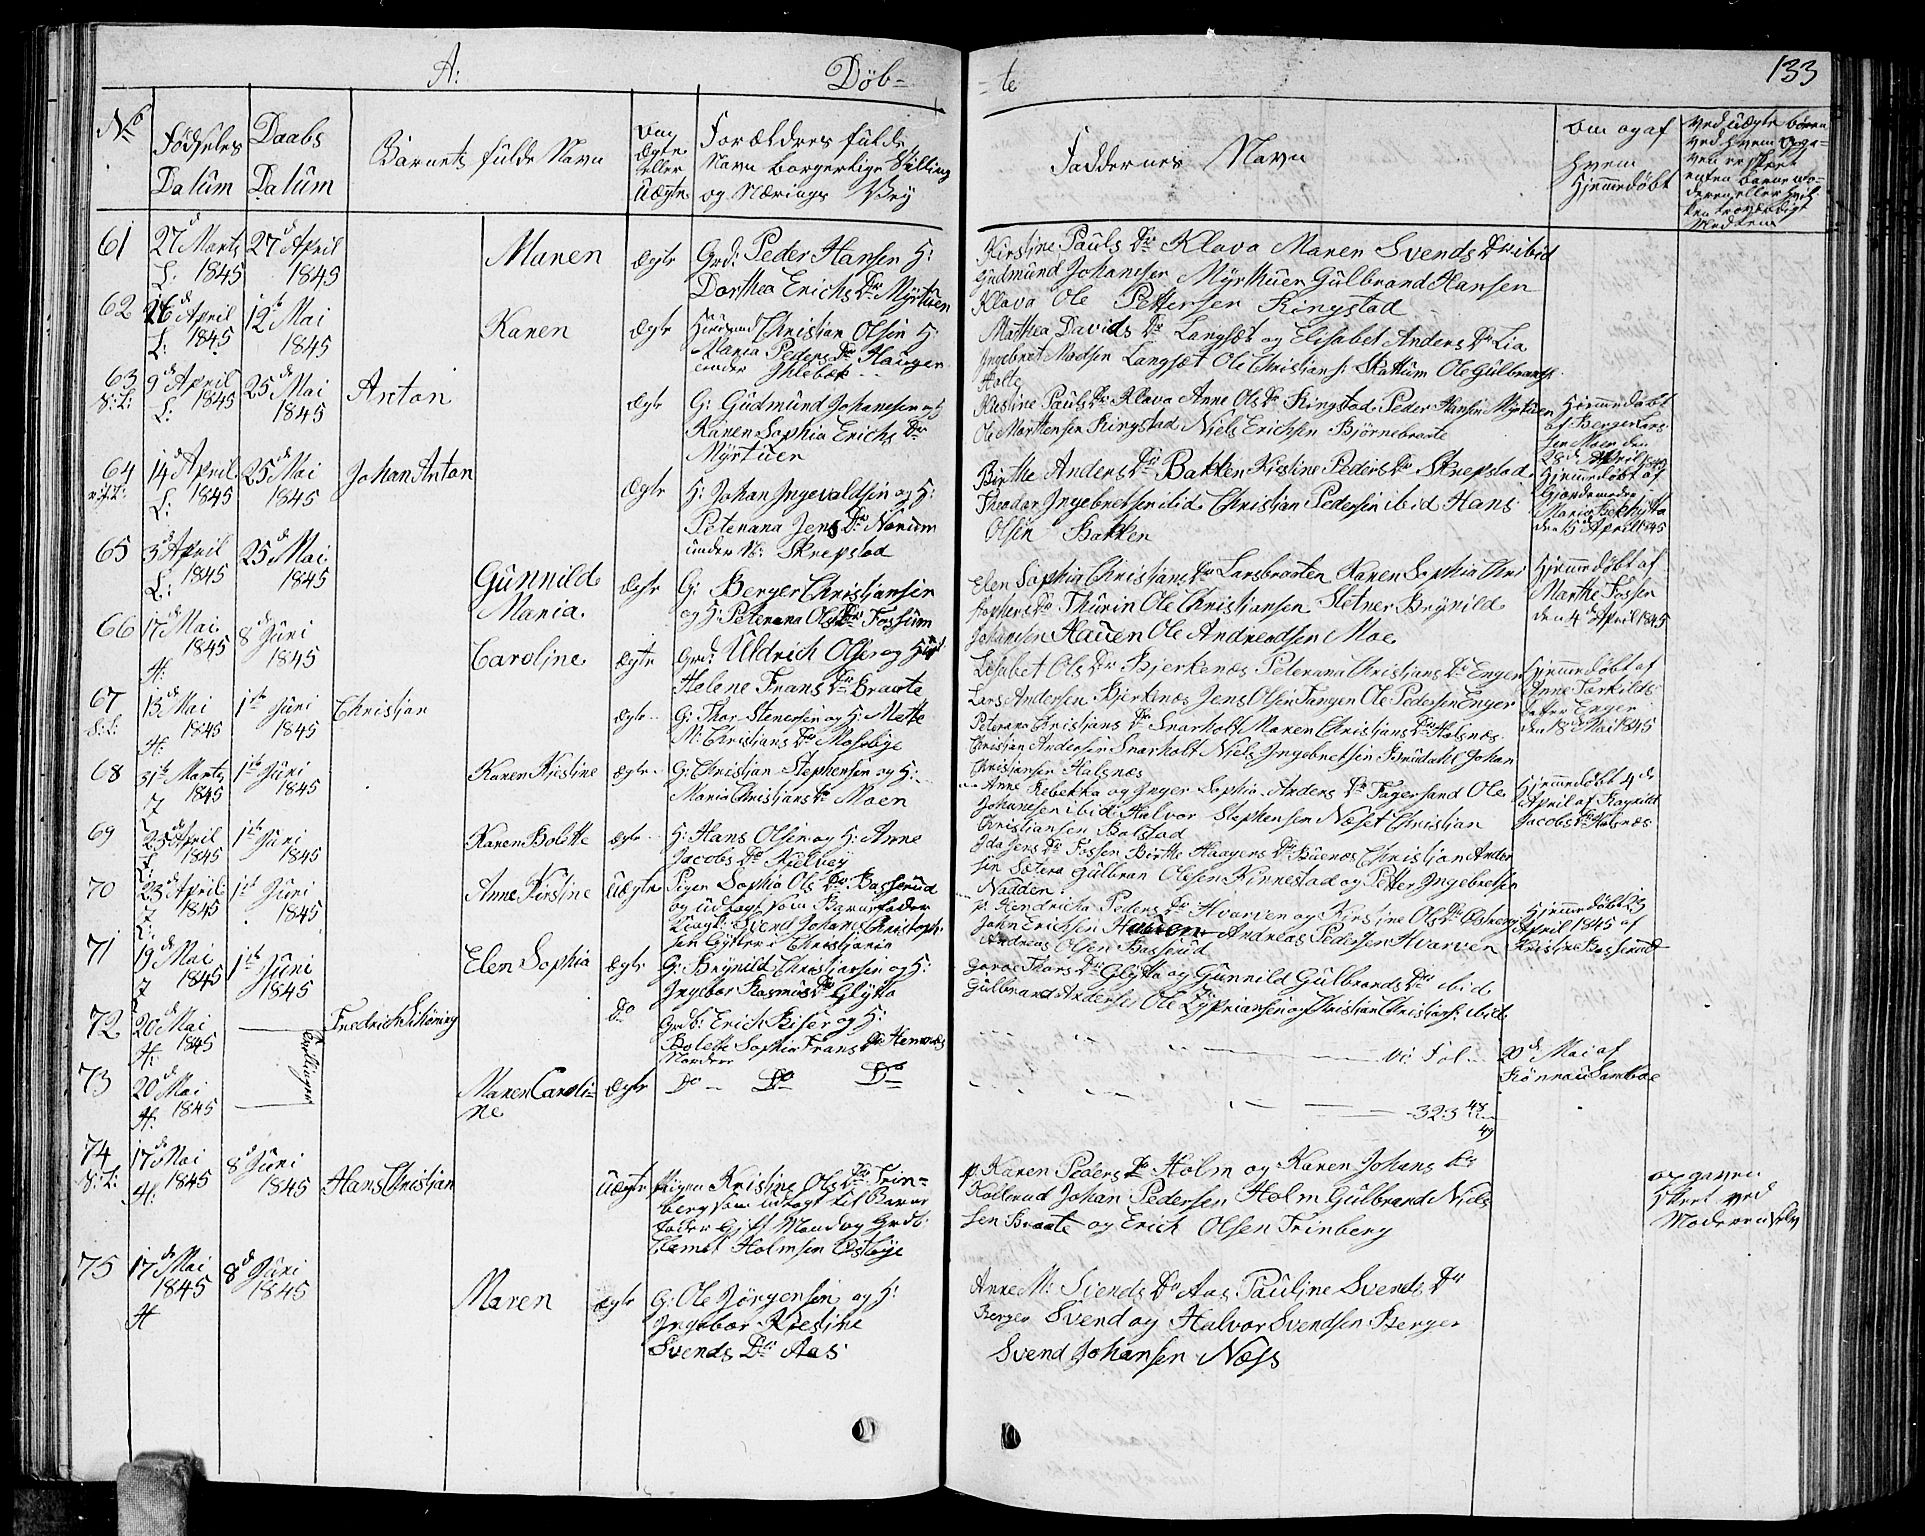 A: Döb- -te 133
No
Födsels Datum
Daabs Datum
Barnets fulde Navn
Om Ægte eller Uægte
Forældres fulde Navn borgerlige Stilling og Nærings Vey
Faddernes Navn
Om og af hvem Hjemmedöbt
61 27d Marts 1845 27d April 1845 Maren Ægte Grd: Peder Hansen H:
L: Dorthea Erichs Dr Myrtuen
Kirstine Pauls Dr Klava Maren Svends Dr ibid
Gudmund Johannesen Myrthuen Gulbrand Hansen
Klava Ole Pettersen Ringstad
62 26d April 1845 12te Mai 1845 Karen Ægte Huusmd Christian Olsen H:
L: Maria Peders Dr Hauger
under Ihlebæk
Mathea Davids Dr Langsæt og Elisabet Anders Dr Lia
Ingebret Madsen Langsæt Ole Christians: Skattum Ole Gulbrands:
Holte
63 9d April 1845 25de Mai 1845 Anton Ægte G: Gudmund Johanesen og H
S:L: L: Karen Sophia Erichs Dr
Myrtuen
Kirstine Pauls Dr Klava Anne Ols Dr Ringstad Peder Hansen Myrtuen
Ole Marthensen Ringstad Niels Erichsen Björnebraate
Hjemmedöbt
af Berger Lars
sen Moen den
28d April 1845
64 14d April 1845 25de Mai 1845 Johan Anton Ægte H: Johan Ingevaldsen og H:
L: Peterana Jens Dr Norium
under N: Skrepstad
Birthe Anders Dr Bakken Kirstine Peders Dr Skrepstad
Theodor Ingebretsen ibid Christian Pedersen ibid Hans
Olsen Bakken
Hjemmedöbt af
Gjordemoder
Maria Bekhytta
den 15d April 1845
65 3d April 1845 25de Mai 1845 Gunnild Maria Ægte G: Berger Christiansen
L: og H: Peterana Ols Dr Fossum
Elen Sophia Christians Dr Larsbraaten Karen Sophia Chri
stophers Dr Thurin Ole Christiansen Sletner Brynild
Johansen Hauen Ole Andreadsen Moe
Hjemmedöbt af
Marthe Fossen
den 4d April 1845
66 17de Mai 1845 8d Juni 1845 Caroline Ægte Grd: Uldrich Olsen og
H: Helene Frans Dr Braate
Lisabet Ols Dr Bjerkenæs Peterana Christians Dr Enger
Lars Andersen Bjerkenæs Jens Olsen Tangen Ole Pedersen Enger
Hjemmedöbt af
Anne Torkilds
datter Enger
den 18de Mai 1845
67 13de Mai 1845 1ste Juni 1845 Christian Ægte G: Thor Stenersen og H: Mette
S:L: H: M: Christians Dr Mosebye
Peterana Christians Dr Snarholt Maren Christians Dr Halsnæs
Christian Andersen Snarholt Niels Ingebretsen Brudahl Johan
Christiansen Halsnæs
68 31te Marts 1845 1ste Juni 1845 Karen Kirstine Ægte G: Christian Stephensen og H:
Maria Christians Dr Moen
Anne Rebekka og Inger Sophia Anders Dr Fagersand Ole
Johanesen ibid Halvor Stephensen Næset Christian
Christiansen Bolstad
Hjemmedöbt 4de
April af Ragnild
Jacobs Dr Halsnæs
69 25de April 1845 1ste Juni 1845 Karen Bolette Ægte H: Hans Olsen og H: Anne
L: Jacobs Dr Kielvey
Ida Jens Dr Fossen Birthe Haagens Dr Buenæs Christian Ander
sen Sætera Gulbran Olesen Kinnestad og Petter Ingebretsen
Nadden
70 23de April 1845 1ste Juni 1845 Anne Kirstine Uægte Pigen Sophia Ols Dr Basserud
og udlagt som Barnefader
Ungk: Svend Johanes Christoph
sen Gytter i Christiania
p: Hendricka Peders Dr Hvarven og Kirstine Ols Dr Östberg
John Erichsen Hauen Andreas Pedersen Hvarven
Andreas Olsen Basserud
Hjemmedöbt 23
April 1845 af
Kristine Basserud
71 19de Mai 1845 1ste Juni 1845 Elen Sophia Ægte G: Brynild Christiansen og H:
Ingebor Rasmus Dr Glytta
Goroe Thors Dr Glytta og Gunnild Gulbrands Dr ibid
Gulbrand Andersen Ole Zyprianssen og Christian Christians: ibid
72 20de Mai 1845 Fredrich Do Grdb: Erich Biser og H:
H: Bolette Sophia Frans Dr Hemnæs
Nordere
vi: Fol
20de Mai af
Rönnau Sambøe
Tvillinger
73 20de Mai 1845 Maren Caroline Ægte Do Do Do
H: 323 48 49
74 17de Mai 1845 8d Juni 1845 Hans Christian Uægte Pigen Kristine Ols Dr Trin-
S:L: H: berg som udlagt til Barne
fader Gift Mand og Grdb:
Clemet Holmsen Östbye
p Karen Peders Dr Holm og Karen Johans Dr
Kollerud Johan Pedersen Holm Gulbrand Niels
sen Braate og Erich Olsen Trinberg
opgaven
skeet ved
Moderen selv
75 17de Mai 1845 8de Juni 1845 Maren Ægte G: Ole Jörgensen og H:
H Ingebor Kirstine
Svends Dr Aas
Anne M: Svends Dr Aas Pauline Svends Dr
Berger Svend og Halvor Svendsen Berger
Svend Johansen Næss